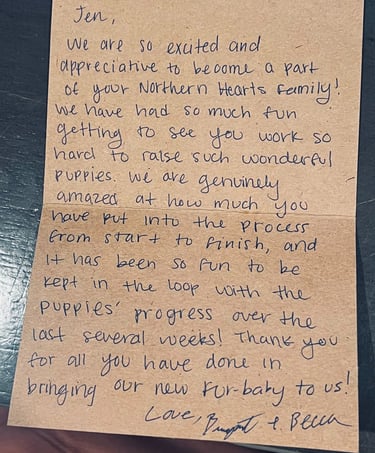 Jen,
We are so excited and
appreciative to become a part
of your Northern Hearts family!
We have had so much fun
getting to see you work so
hard to raise such wonderful
puppies. We are genuinely
amazed at how much you
have put into the process
from start to finish, and
it has been so fun to be
kept in the loop with the
puppies' progress over the
last several weeks! Thank you
for all you have done in
bringing our new fur-baby to us!
Love, & Becca